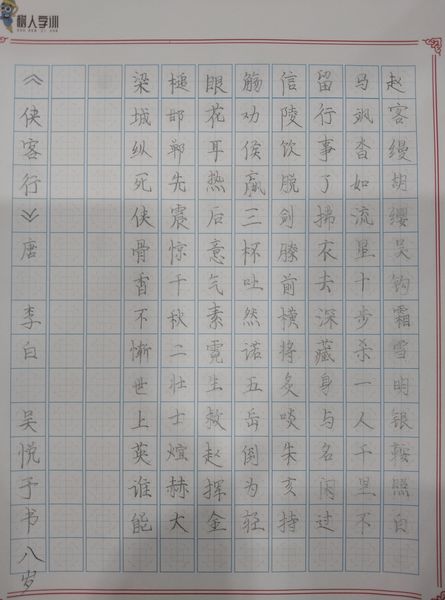 树人
赵客缦胡缨吴钩霜雪明银鞍照白
马飒沓如流星十步杀一人千里不
留行事了拂衣去深藏身与名闲过
信陵饮脱剑膝前横将炙啖朱亥持
觞劝侯嬴三杯吐然诺五岳倒为轻
眼花耳热后意气素霓生救赵挥金
槌邯郸先震惊千秋二壮士烜赫大
梁城纵死侠骨香不惭世上英谁能
《侠客行》唐 李白 吴悦予书八岁